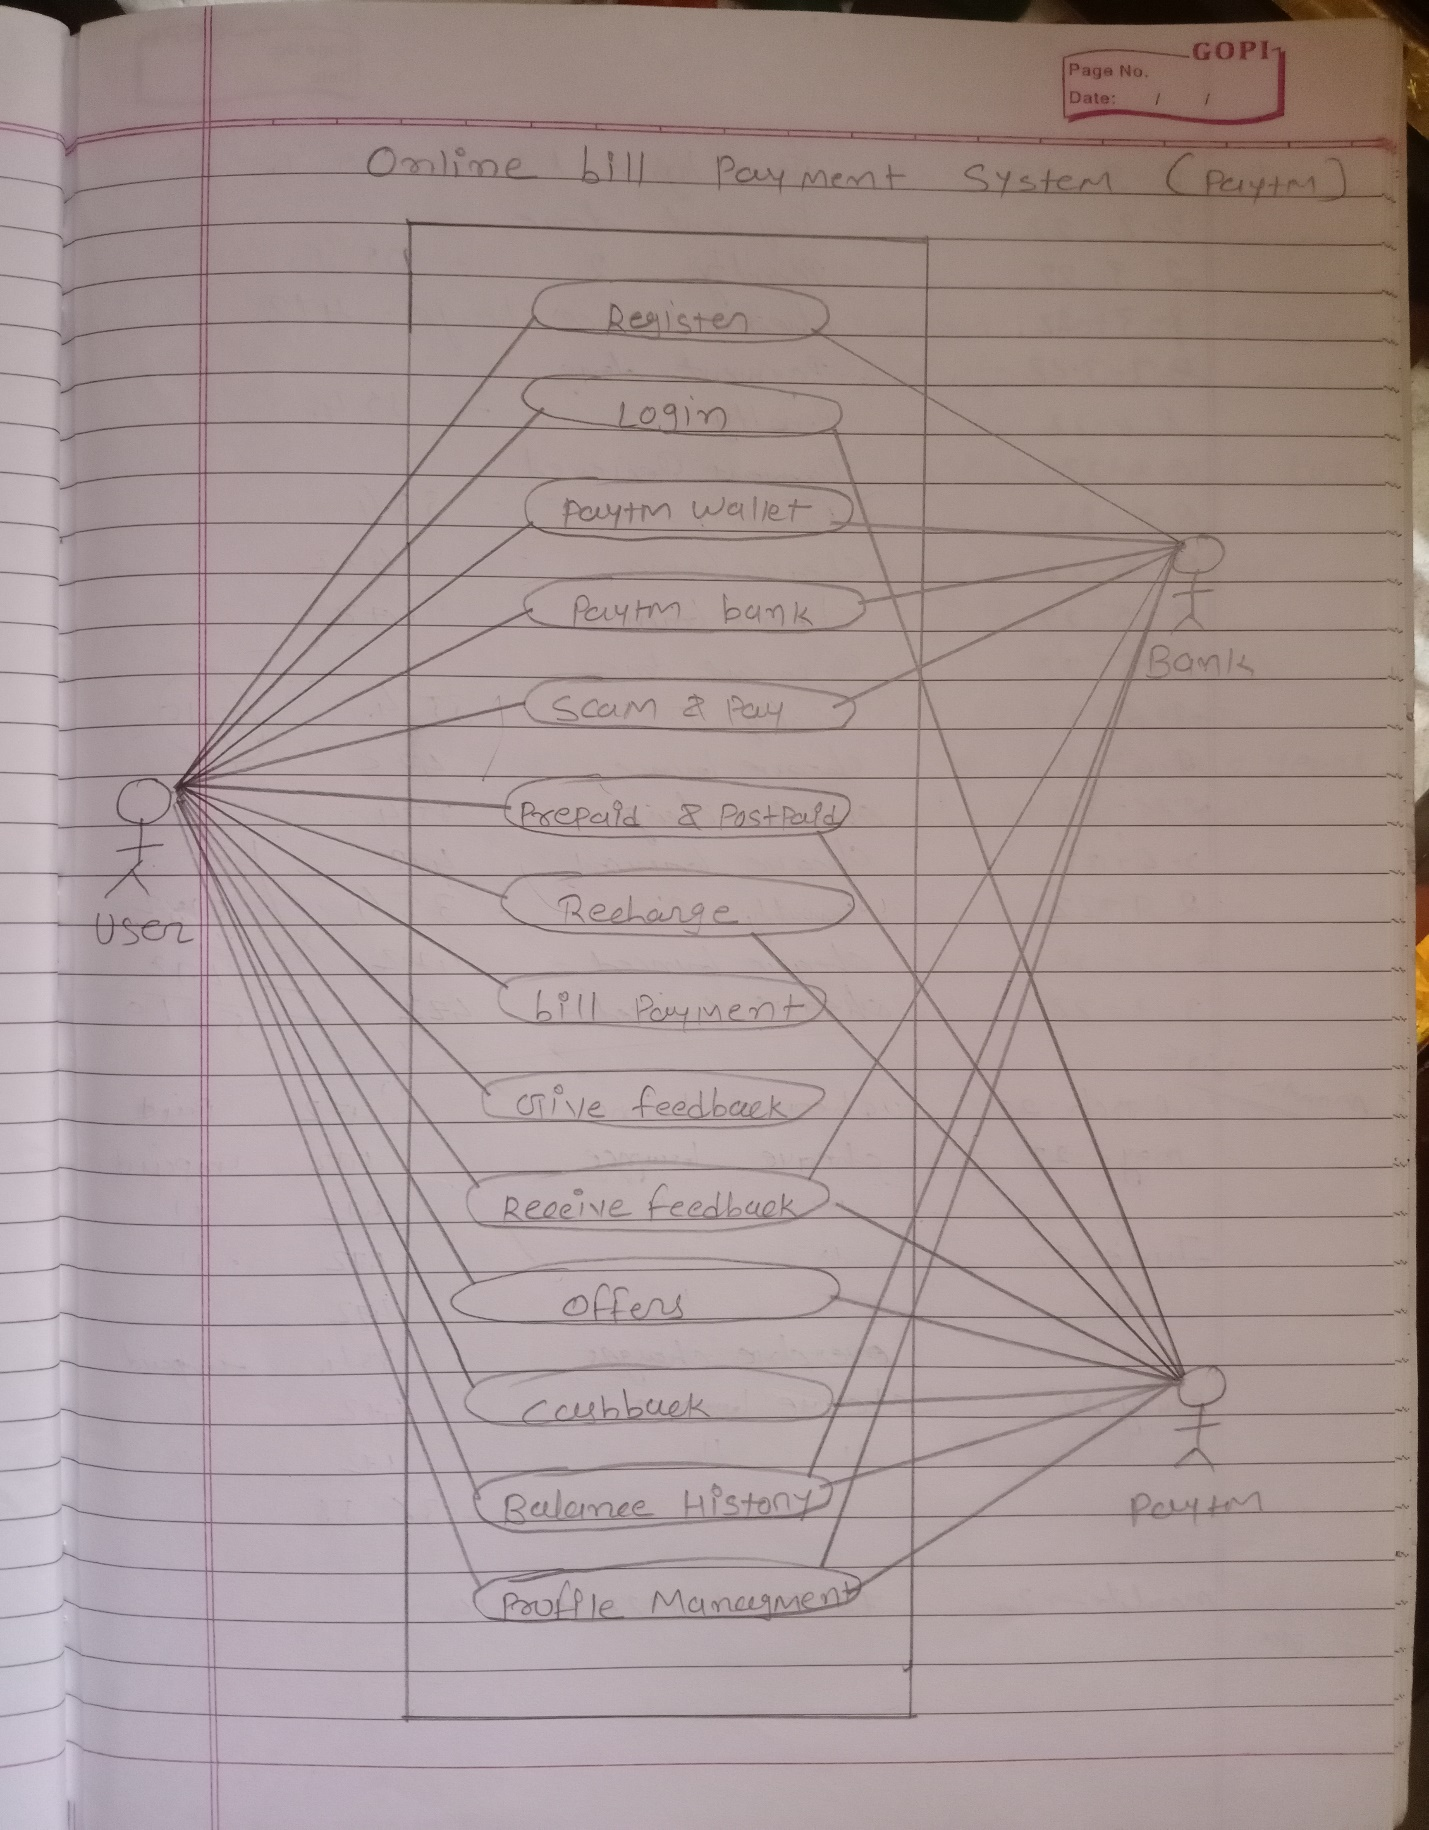 GOPI
Page No.
Date: / /
Online bill Payment System (Paytm)
Register
Login
Paytm Wallet
Paytm bank
Bank
Scan & Pay
Prepaid & Postpaid
Recharge
User
bill Payment
Give feedback
Receive feedback
Offers
Cashback
Balance History
Paytm
Profile Managment